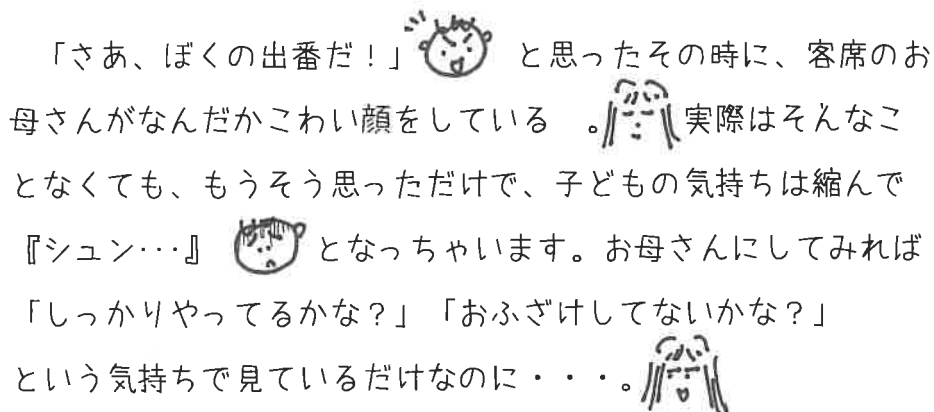 「さあ、ぼくの出番だ！」 と思ったその時に、客席のお
母さんがなんだかこわい顔をしている 。 実際はそんなこ
となくても、もうそう思っただけで、子どもの気持ちは縮んで
『シュン･･･』 となっちゃいます。お母さんにしてみれば
「しっかりやってるかな？」「おふざけしてないかな？」
という気持ちで見ているだけなのに・・・。